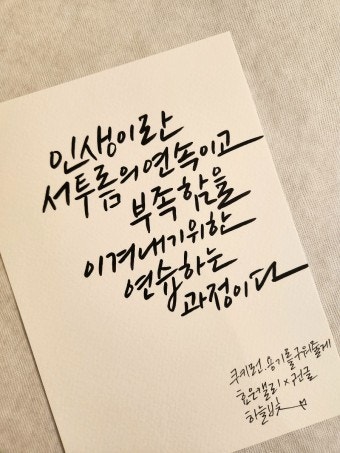 인생이란
서투름의 연속이고
부족함을
이겨내기 위한
연습하는
과정이다
쿠키런. 용기를 구워줄게
효은캘리 × 퀸글
하늘빛